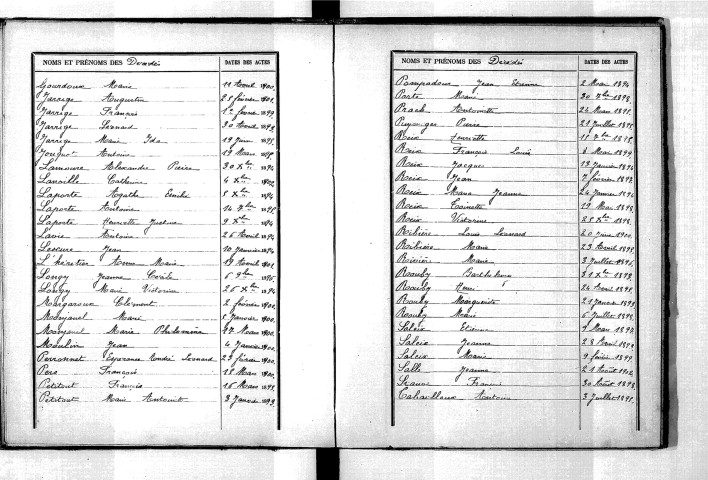 NOMS ET PRÉNOMS DES Décédés DATES DES ACTES
Gourdoux Marie 11 Avril 1900.
Jarrige Augustin 21 février 1901.
Jarrige François 1er février 1899.
Jarrige Léonard 30 Avril 1899.
Jarrige Marie Ida 19 Juin 1895.
Antoine 19 Mars 1895.
Lamoure Alexandre Pierre 30 Xbre 1894.
Catherine 4 Xbre 1902.
Laporte Agathe Emilie 8 Xbre 1894.
Laporte Antoine 14 7bre 1895.
Laporte Henriette Justine 9 Xbre 1894.
Antoine 25 Avril 1894.
Lescure Jean 10 Janvier 1894.
L'héritier Anne Marie 19 Avril 1901.
Longy Jeanne Cécile 6 9bre 1896.
Longy Marie Victorine 25 Xbre 1894.
Margaroux Clément 2 février 1900.
Marie 8 Janvier 1900.
Marie Philomène 27 Mars 1900.
Moulin Jean 4 Janvier 1900.
Perronnet Esperance André Léonard 23 février 1900.
Pers François 18 Mars 1900.
Petitout François 16 Mars 1898.
Petitout Marie Antoinette 3 Janvier 1899.
NOMS ET PRÉNOMS DES Décédés DATES DES ACTES
Pompadour Jean Etienne 2 Mai 1894.
Porte Marie 30 7bre 1898.
Prach Antoinette 24 Mars 1895.
Pierre 23 Juillet 1895.
Roux Henriette 11 7bre 1895.
Roux François Louis 8 Mai 1899.
Roux Jacques 13 Janvier 1894.
Roux Jean 7 février 1893.
Roux Marie Jeanne 24 Janvier 1894.
Roux Toinette 19 Mai 1898.
Roux Victorine 28 Xbre 1898.
Ribière Louis Léonard 20 Juin 1900.
Ribière Marie 23 Avril 1898.
Marie 3 Juillet 1896.
Rouby Barthélémy 31 Xbre 1898.
Rouby Henri 24 Avril 1895.
Rouby Marguerite 29 Janvier 1899.
Rouby Marie 6 Juillet 1898.
Saleix Etienne 9 Mars 1893.
Saleix Jeanne 28 Avril 1899.
Saleix Marie 9 février 1899.
Salle Jeanne 21 Août 1902.
30 Août 1898.
Antoine 3 Juillet 1895.